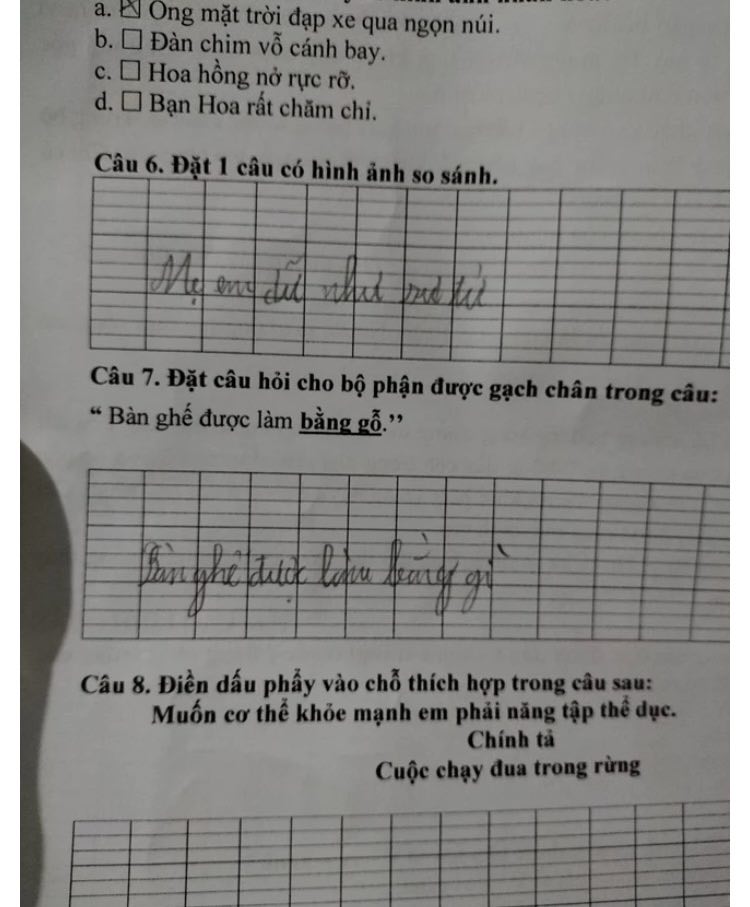 a. ☒ Ông mặt trời đạp xe qua ngọn núi.
b. ☐ Đàn chim vỗ cánh bay.
c. ☐ Hoa hồng nở rực rỡ.
d. ☐ Bạn Hoa rất chăm chỉ.
Câu 6. Đặt 1 câu có hình ảnh so sánh.
Mẹ em dữ như sư tử
Câu 7. Đặt câu hỏi cho bộ phận được gạch chân trong câu:
“ Bàn ghế được làm bằng gỗ.”
Bàn ghế được làm bằng gì
Câu 8. Điền dấu phẩy vào chỗ thích hợp trong câu sau:
Muốn cơ thể khỏe mạnh em phải năng tập thể dục.
Chính tả
Cuộc chạy đua trong rừng